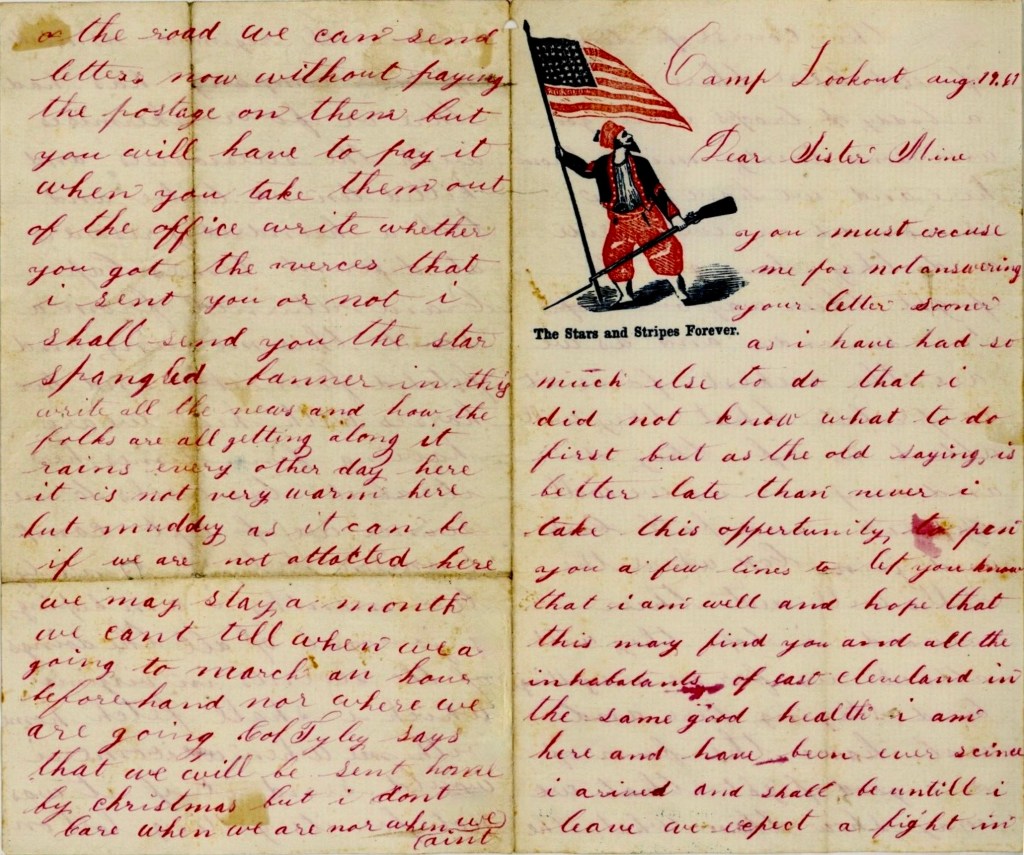 Camp Lookout aug. 19. 61
Dear Sister Mine
you must excuse
me for not answering
your letter sooner
The Stars and Stripes Forever.
as i have had so
much else to do that i
did not know what to do
first but as the old saying is
better late than never i
take this oppertunity to pen
you a few lines to let you know
that i am well and hope that
this may find you and all the
inhabatants of east cleveland in
the same good health i am
here and have been ever scince
i arived and shall be untill i
leave we expect a fight in
on the road we can send
letters now without paying
the postage on them but
you will have to pay it
when you take them out
of the office write whether
you got the verces that
i sent you or not i
shall send you the star
spangled banner in this
write all the news and how the
folks are all getting along it
rains every other day here
it is not very warm here
but muddy as it can be
if we are not attacted here
we may stay a month
we cant tell when we a
going to march an hour
before hand nor where we
are going Col Tyley says
that we will be sent home
by christmas but i dont
care when we are nor when we
aint